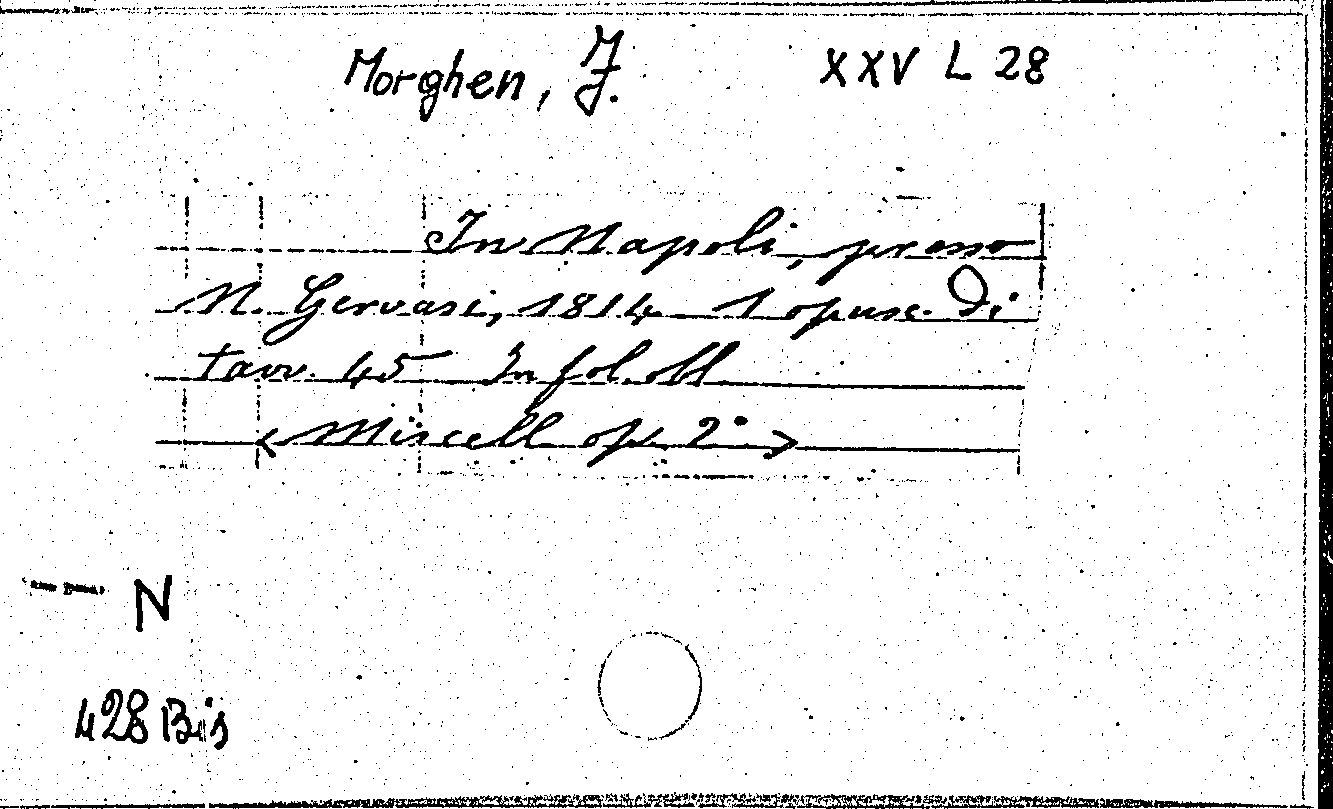 Morghen, J. XXV L 28
In Napoli, presso
N. Gervasi, 1814 1 opusc. di
tavv. 45 In fol. obl.
< Miscell. op. 2° >
N
428 Bis